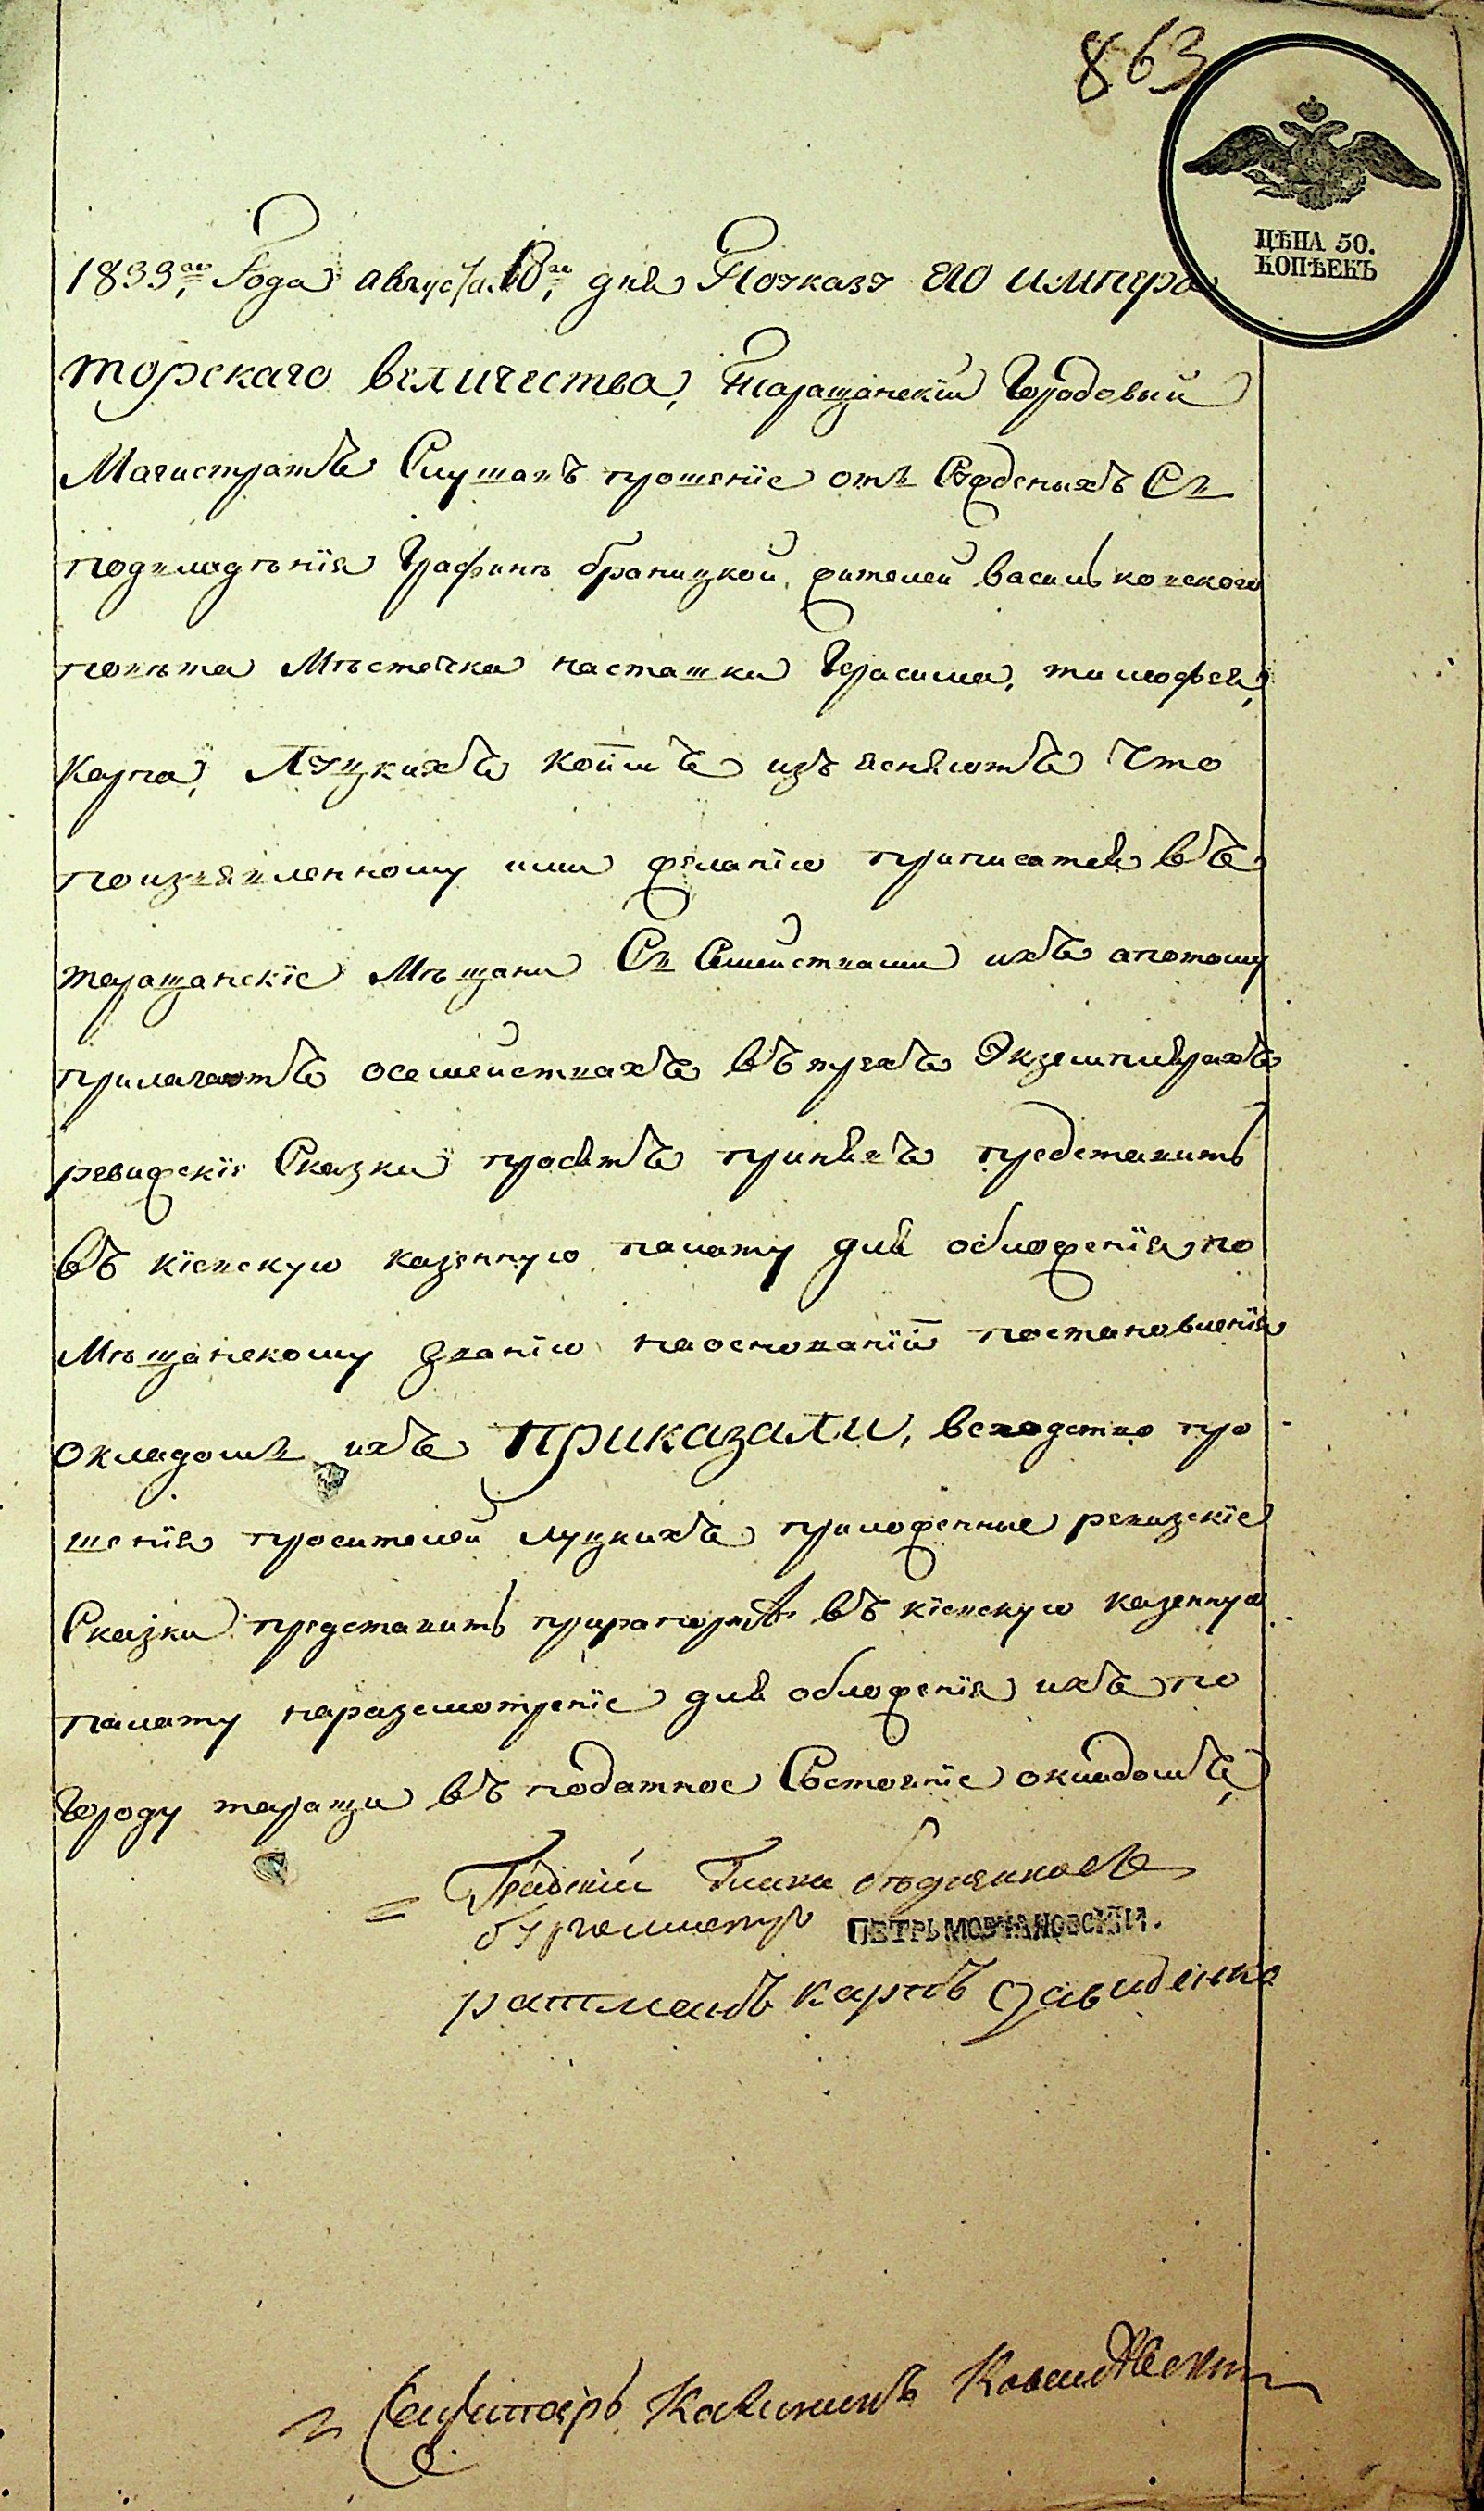 863
ЦѢНА 50.
КОПѢЕКЪ
1833го Года августа 18го дня По указу его импера
торскаго величества, Таращанскій Городовый
Магистратъ Слушавъ прошеніе отъ Сужденыхъ Съ
подвладѣнія Графинѣ браницкой, жителей васильковского
повѣта Мѣстечка насташки Герасима, тимофея,
карпа, Луцкихъ коїмъ изъясняютъ что
поизъявленному ими желанію приписатся въ
таращанскіе Мѣщани Съ Семействами ихъ апотому
прилагаютъ осемействахъ въ трехъ Экземплярахъ
ревижскіе Сказки просятъ принявъ представить
въ кіевскую казенную палату для обложенія по
Мѣщанскому званію наоснованіи постановленія
окладомъ ихъ приказали, вследство про
шенія просителей луцкихъ приложенные ревизскіе
Сказки представить прирапортѣ въ кіевскую казенную
палату наразсмотреніе для обложенія ихъ по
Городу таращи въ податное Состояніе окладомъ,
Градскій Глава
бургомистръ ПЕТРЪ МОВЧАНОВСКІЙ.
ратманъ карпъ Давиденко
Секретарь